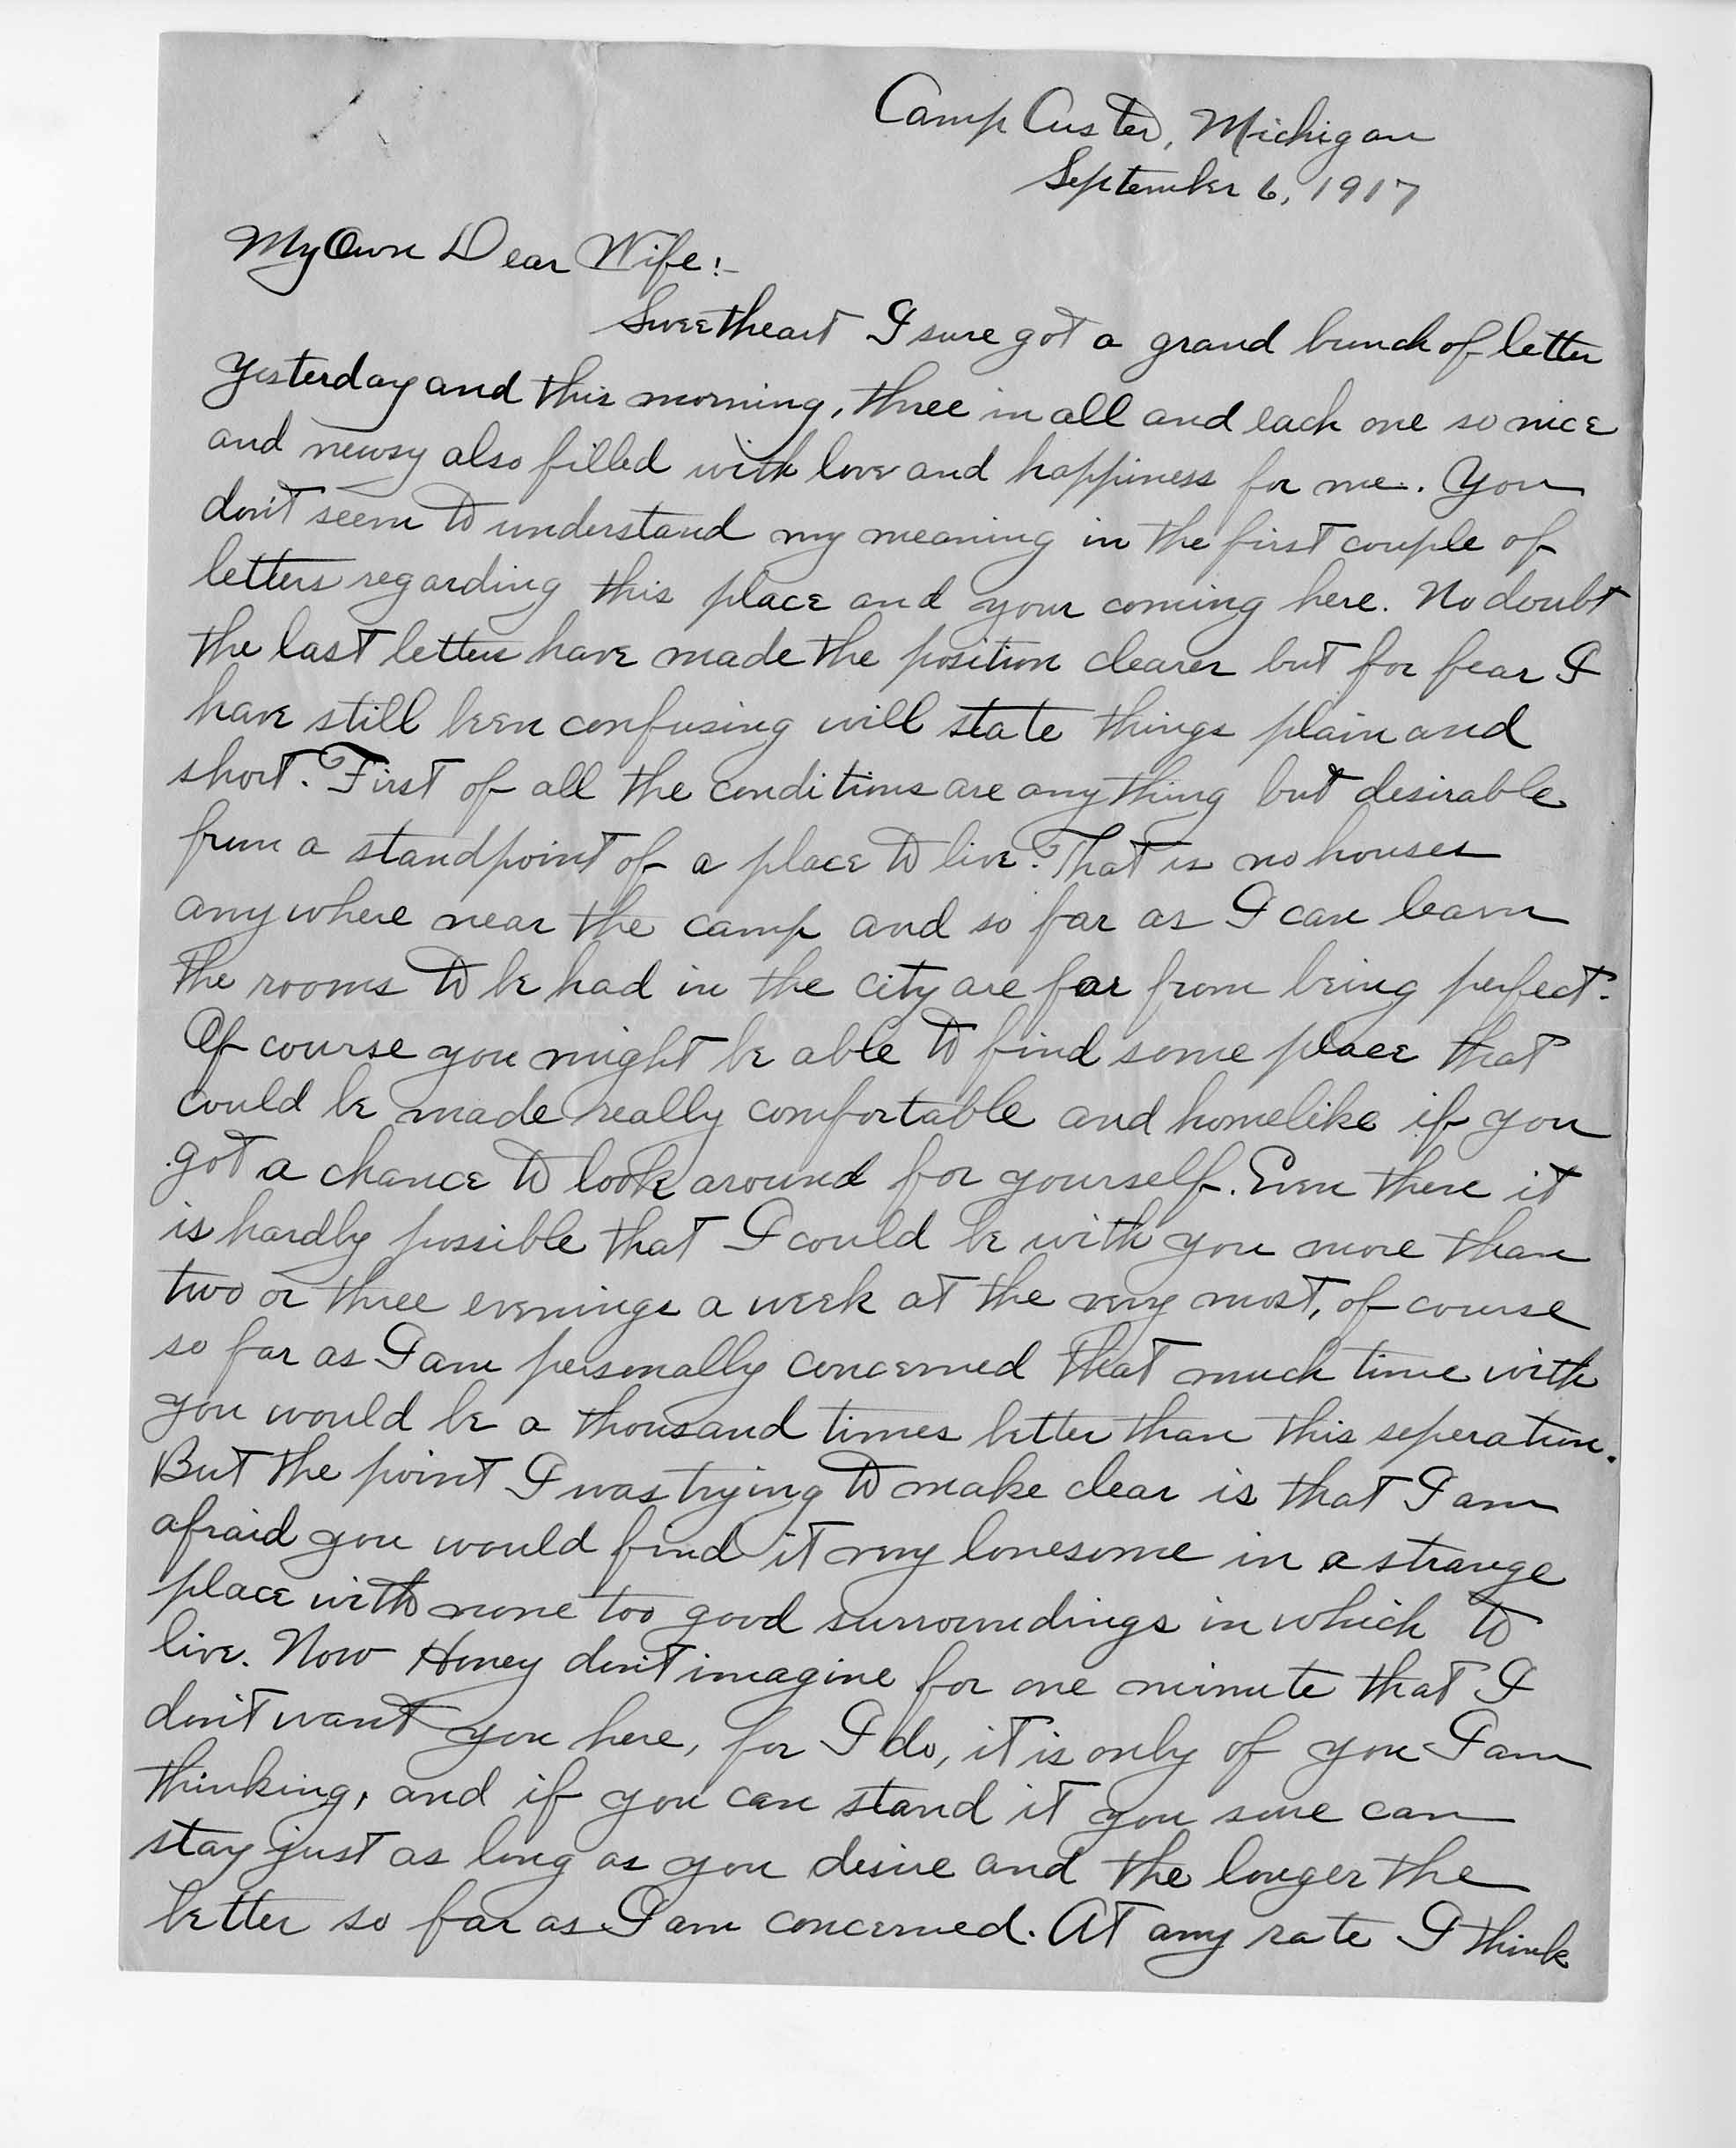 Camp Custer, Michigan
September 6, 1917
My Own Dear Wife:-
Sweetheart I sure got a grand bunch of letter
yesterday and this morning, three in all and each one so nice
and newsy also filled with love and happiness for me. You
don't seem to understand my meaning in the first couple of
letters regarding this place and your coming here. No doubt
the last letters have made the position clearer but for fear I
have still been confusing will state things plain and
short. First of all the conditions are anything but desirable
from a standpoint of a place to live. That is no houses
anywhere near the camp and so far as I can learn
the rooms to be had in the city are far from being perfect.
Of course you might be able to find some place that
could be made really comfortable and homelike if you
got a chance to look around for yourself. Even there it
is hardly possible that I could be with you more than
two or three evenings a week at the very most, of course
so far as I am personally concerned that much time with
you would be a thousand times better than this seperation.
But the point I was trying to make clear is that I am
afraid you would find it very lonesome in a strange
place with none too good surroundings in which to
live. Now Honey don't imagine for one minute that I
don't want you here, for I do, it is only of you I am
thinking, and if you can stand it you sure can
stay just as long as you desire and the longer the
better so far as I am concerned. At any rate I think